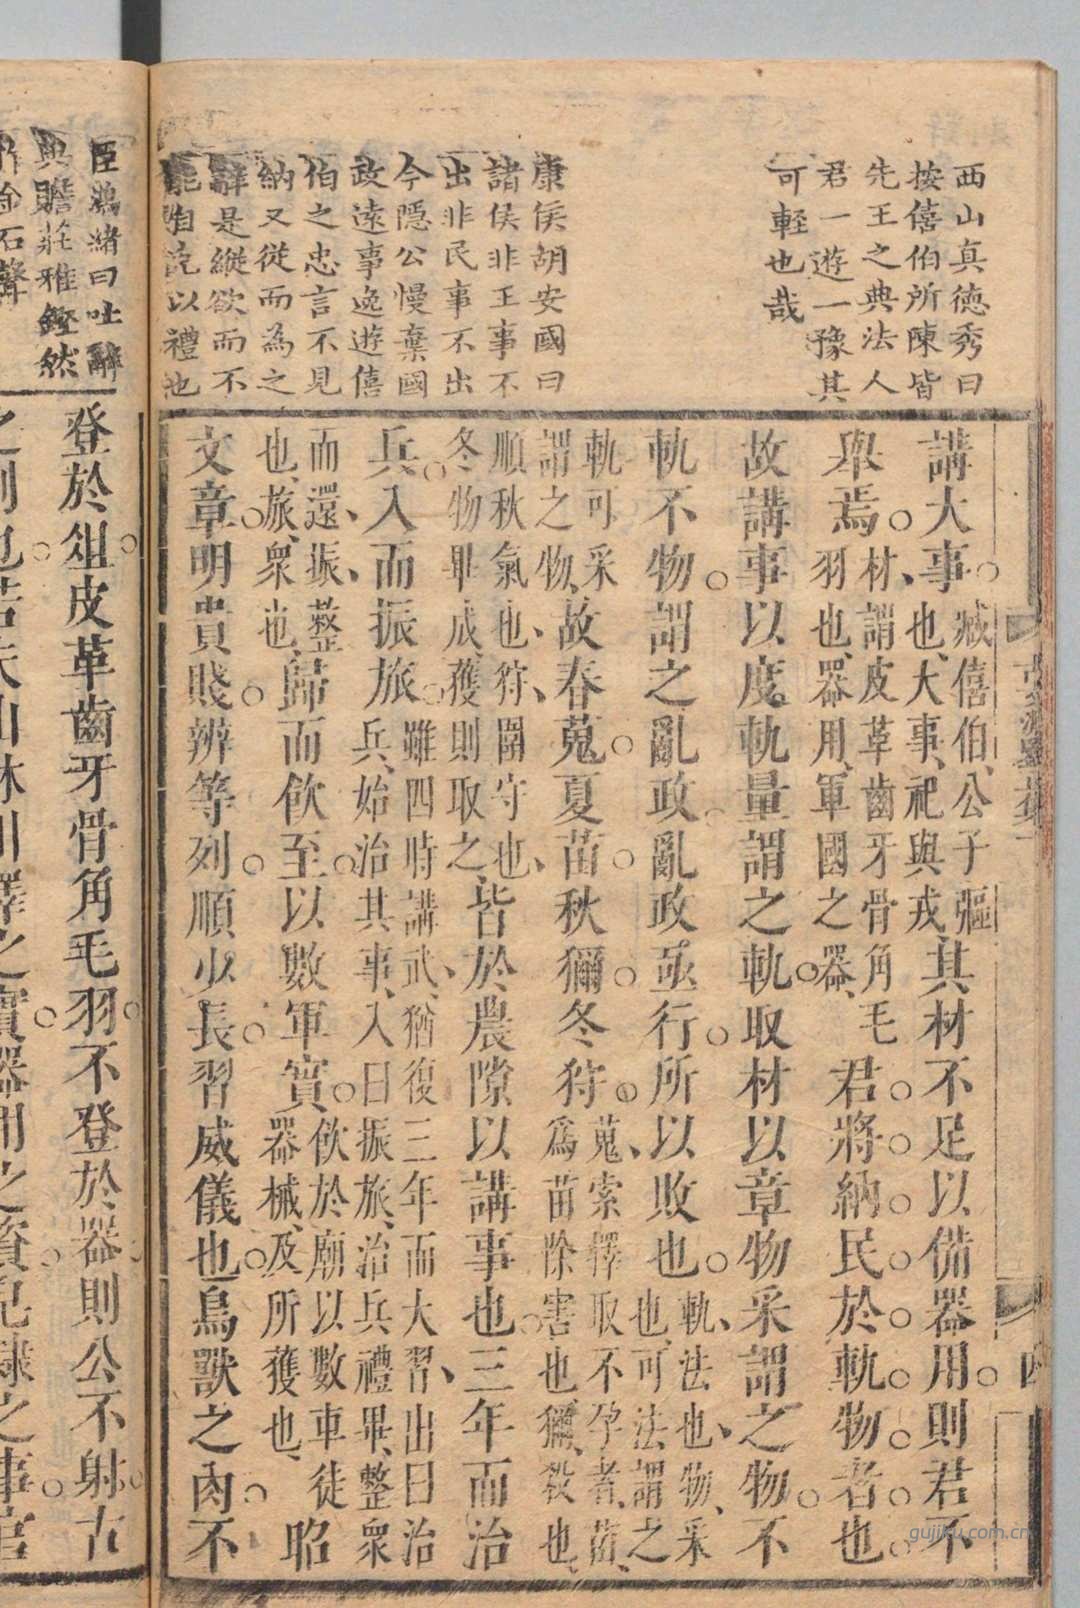 西山真德秀曰
按僖伯所陳皆
先王之典法人
君一遊一豫其
可輕也哉
康侯胡安國曰
諸侯非王事不
出非民事不出
今隱公慢棄國
政遠事逸遊僖
伯之忠言不見
納又從而為之
辭是縱欲而不
能自克以禮也
講大事臧僖伯、公子彄也、大事、祀與戎、其材不足以備器用則君不
舉焉材、謂皮革齒牙骨角毛羽也、器用、軍國之器、君將納民於軌物者也
故講事以度軌量謂之軌取材以章物采謂之物不
軌不物謂之亂政亂政亟行所以敗也軌、法也、物、采也、可法謂之
軌可采謂之物、故春蒐夏苗秋獮冬狩蒐、索擇取不孕者、苗、為苗除害也、獮、殺也、
順秋氣也、狩、圍守也、冬物畢成、獲則取之、皆於農隙以講事也三年而治
兵入而振旅雖四時講武、猶復三年而大習、出曰治兵、始治其事、入曰振旅、治兵禮畢、整眾
而還、振、整也、旅、眾也、歸而飲至以數軍實飲於廟以數車徒器械、及所獲也、昭
文章明貴賤辨等列順少長習威儀也鳥獸之肉不
臣鴻緒曰吐辭
典贍莊雅鏗然
作金石聲
登於俎皮革齒牙骨角毛羽不登於器則公不射古
之制也若夫山林川澤之實器用之資皁隸之事官
四
gujiku.com.cn